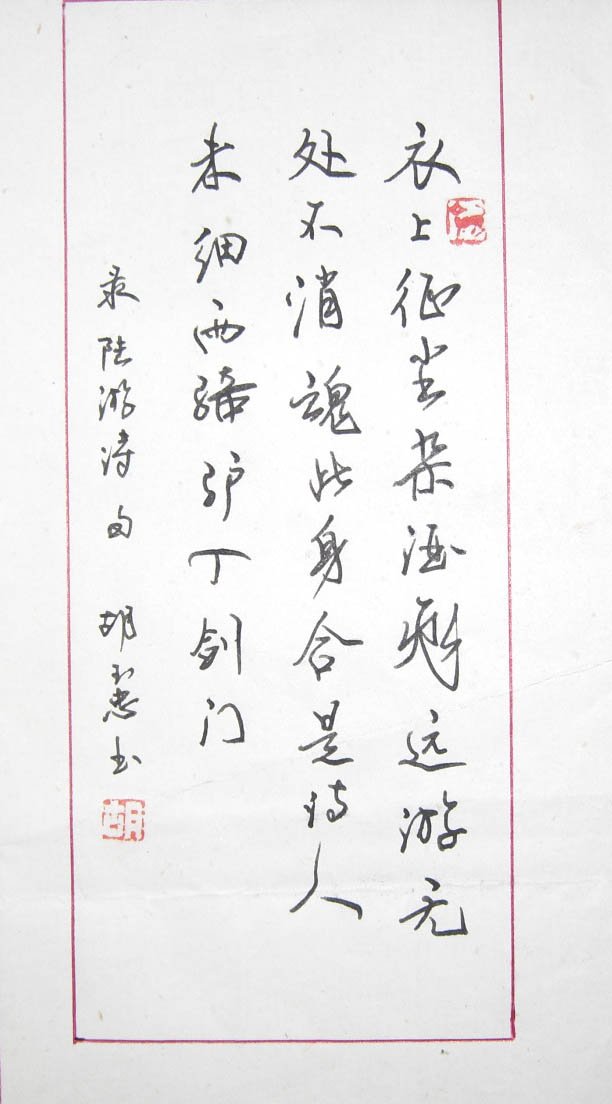 衣上征尘杂酒痕远游无
处不消魂此身合是诗人
未细雨骑驴下剑门
录陆游诗句 胡 书
胡